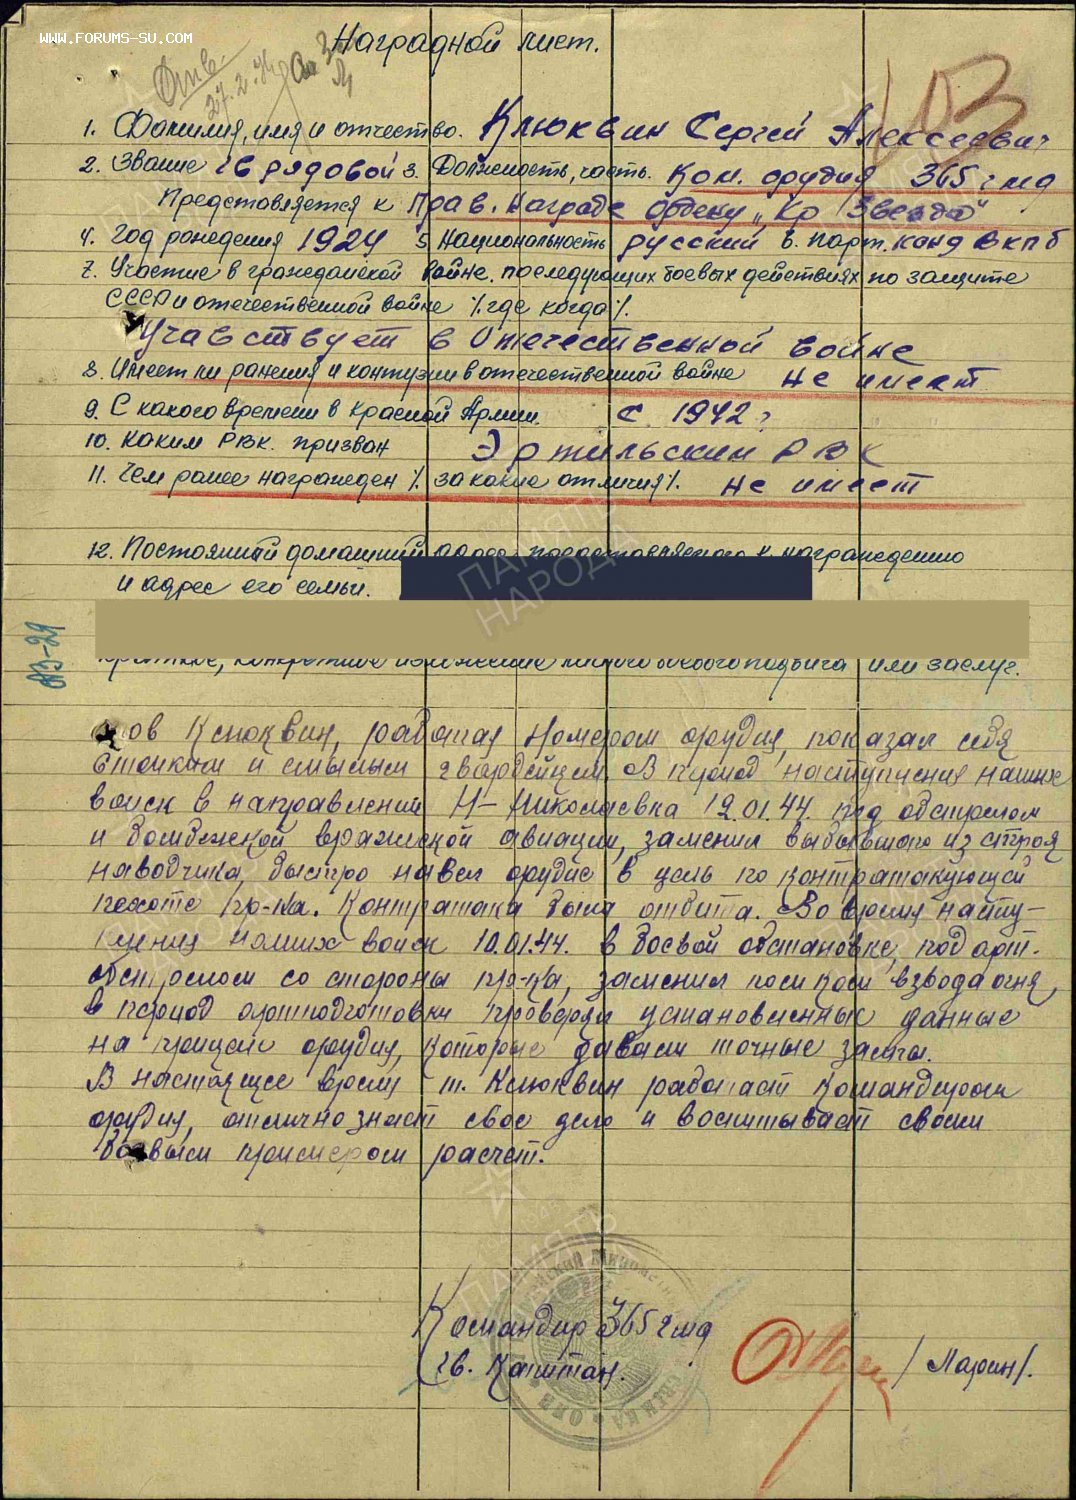 WWW.FORUMS-SU.COM
Наградной лист.
27.2.44
1. Фамилия, имя и отчество. Клюквин Сергей Алексеевич
2. Звание гв рядовой 3. Должность, часть. Ком. орудия 365 гмд
Представляется к Прав. Награде ордену „Кр Звезда"
4. Год рождения 1924 5 Национальность русский 6. Парт. канд ВКПб
7. Участие в гражданской войне. последующих боевых действиях по защите
СССР и отечественной войне /. где когда /.
Учавствует в Отечественной войне
8. Имеет ли ранения и контузии в отечественной войне не имеет
9. С какого времени в Красной Армии. с 1942 г
10. Каким РВК. призван Эртильским РВК
11. Чем ранее награжден /. за какие отличия /. не имеет
12. Постоянный домашний адрес представляемого к награждению
и адрес его семьи.
Краткое, конкретное изложение личного боевого подвига или заслуг.
Клюквин, работая номером орудия, показал себя
стойким и смелым гвардейцем. В период наступления наших
войск в направлении Н-Николаевка 12.01.44. под обстрелом
и бомбежкой вражеской авиации, заменил выбывшего из строя
наводчика, быстро навел орудие в цель по контратакующей
пехоте пр-ка. Контратака была отбита. Во время насту-
пления наших войск 10.01.44. в боевой обстановке, под арт.
обстрелом со стороны пр-ка, заменил пом ком взвода огня,
в период артподготовки проверял установленные данные
на прицеле орудия, которые давали точные залпы.
В настоящее время т. Клюквин работает командиром
орудия, отлично знает свое дело и воспитывает своим
боевым примером расчет.
Командир 365 гмд
гв. Капитан. /Ларин/.
ПАМЯТЬ
НАРОДА